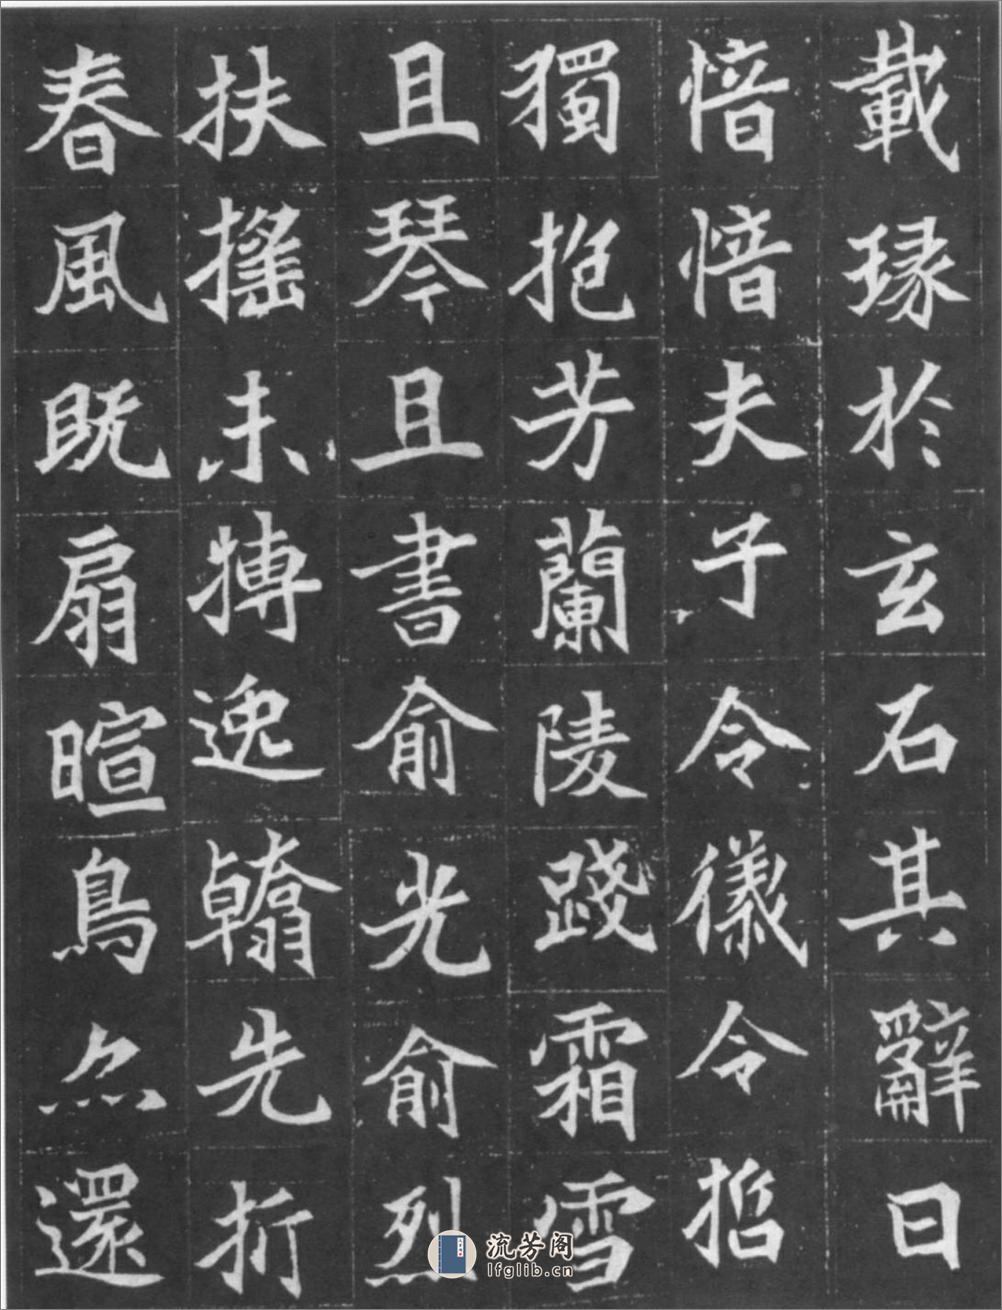 載瑑於玄石其辭曰
愔愔夫子令儀令哲
獨抱芳蘭陵踐霜雪
且琴且書俞光俞烈
扶搖未搏逸翰先折
春風既扇暄鳥尒還
流芳阁
lfglib.cn